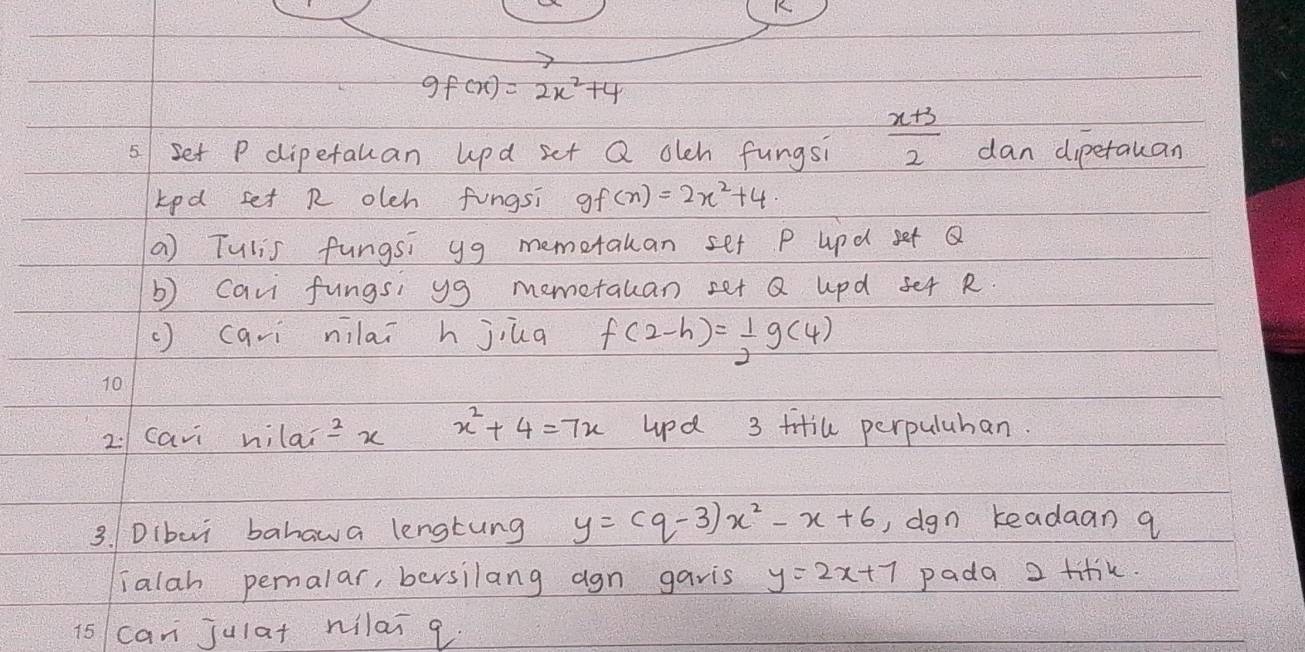 R
gf(x) = 2x²+4
5 set P dipetakan kpd set Q oleh fungsi (x+3)/2 dan dipetakan
kpd set R oleh fungsi gf(x) = 2x²+4.
a) Tulis fungsi yg memetakan set P kpd set Q
b) Cari fungsi yg memetakan set Q kpd set R.
c) cari nilai h jika f(2-h) = 1/2 g(4)
10
2. Cari nilai² x x²+4=7x kpd 3 titik perpuluhan.
3. Diberi bahawa lengkung y = (q-3)x² - x + 6, dgn keadaan q
ialah pemalar, bersilang dgn garis y=2x+7 pada 2 titik.
15 Cari julat nilai q.